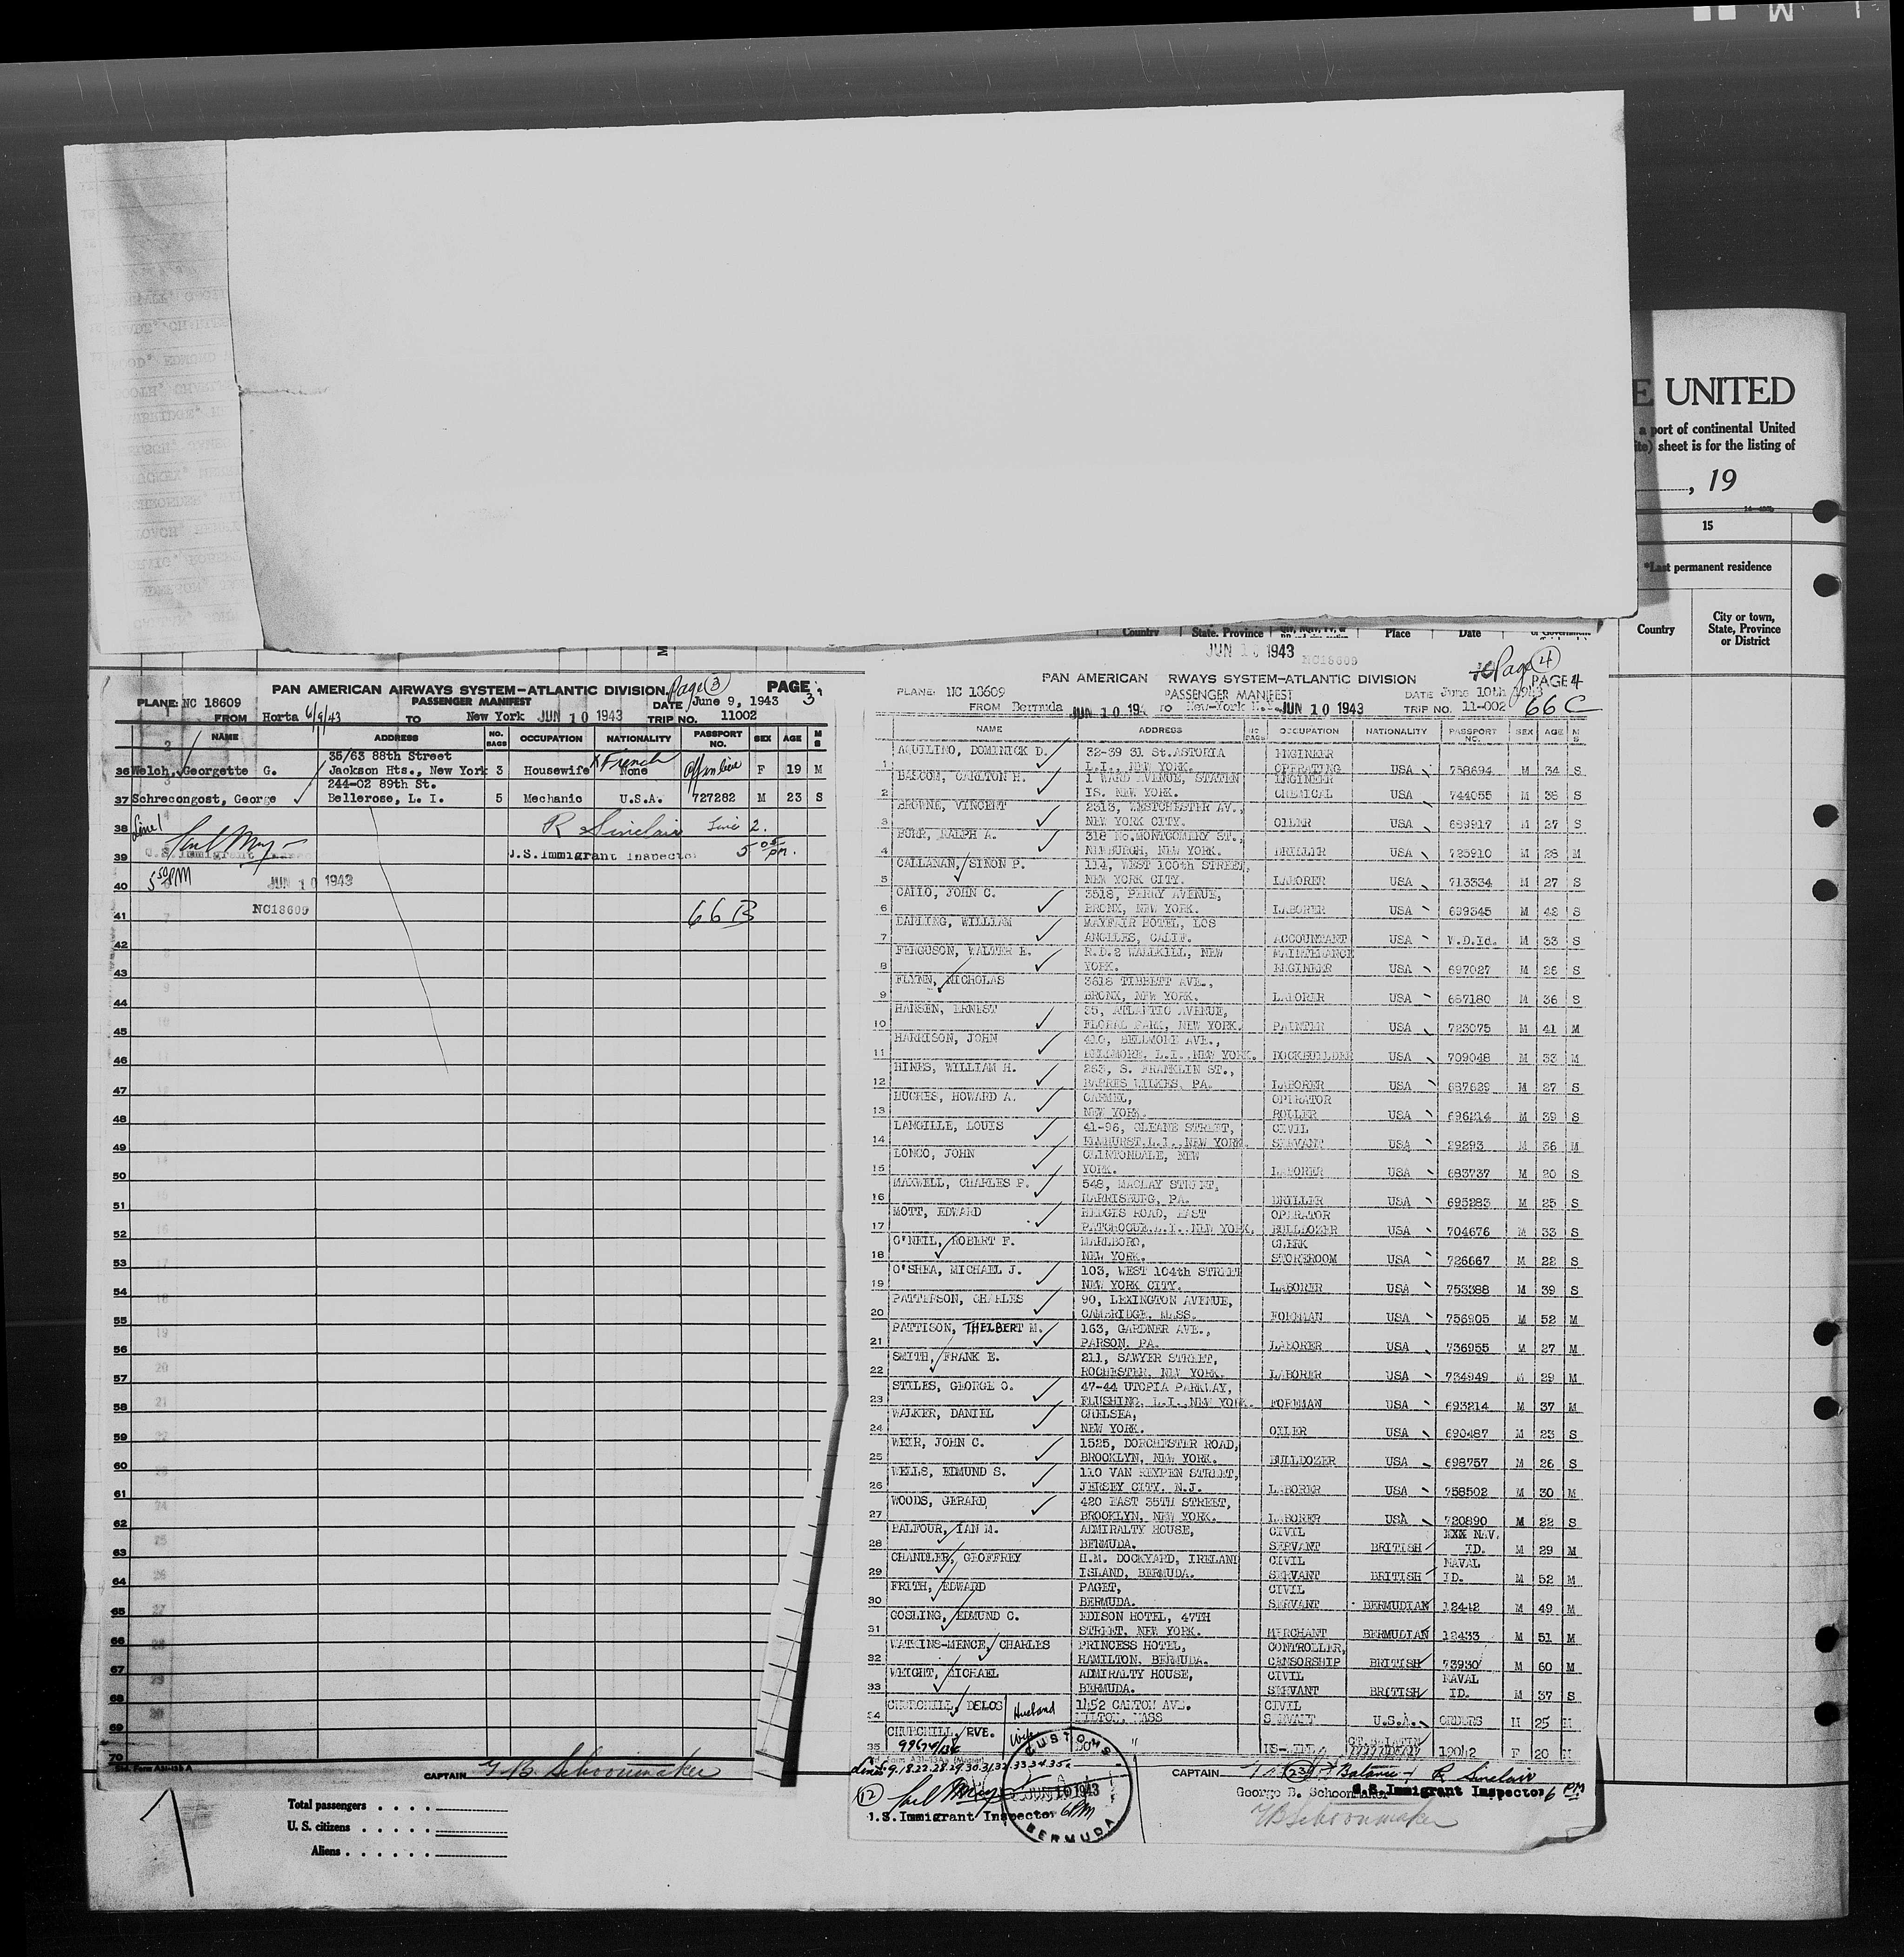 E UNITED
a port of continental United
sheet is for the listing of
, 19
15
*Last permanent residence
Country
City or town,
State, Province
or District
Country State, Province Place Date
PAN AMERICAN AIRWAYS SYSTEM-ATLANTIC DIVISION. Page 3 PAGE 3
PLANE: NC 18609 PASSENGER MANIFEST DATE June 9, 1943
FROM Horta 6/9/43 TO New York JUN 10 1943 TRIP NO. 11002
NAME ADDRESS NO. BAGS OCCUPATION NATIONALITY PASSPORT NO. SEX AGE M S
35/63 88th Street
36 Welch, Georgette G. Jackson Hts., New York 3 Housewife X French None F 19 M
244-02 89th St.
37 Schrecongost, George Bellerose, L. I. 5 Mechanic U.S.A. 727282 M 23 S
38 Line 1 R Sinclair Line 2.
39 U.S. Immigrant U.S. Immigrant Inspector 5 05 pm.
40 5 50 PM JUN 10 1943
NC18609
41 66 B
42
43
44
45
46
47
48
49
50
51
52
53
54
55
56
57
58
59
60
61
62
63
64
65
66
67
68
69
70
Std. Form A31-13A A
CAPTAIN G. B. Schoonmaker
Total passengers . . . .
U. S. citizens . . . . .
Aliens . . . . . .
JUN 10 1943 NC18609
Page 4
PAN AMERICAN RWAYS SYSTEM-ATLANTIC DIVISION PAGE 4
PLANE: NC 18609 PASSENGER MANIFEST DATE June 10th 1943
FROM Bermuda JUN 10 194 TO New-York JUN 10 1943 TRIP NO. 11-002 66 C
NAME ADDRESS NO BAGS OCCUPATION NATIONALITY PASSPORT NO. SEX AGE M S
AQUILINO, DOMINICK D. 32-39 31 St.ASTORIA ENGINEER
1 L.I., NEW YORK. OPERATING USA 758694 M 34 S
BASCOM, CARLTON H. 1 WARD AVENUE, STATEN ENGINEER
2 IS. NEW YORK. CHEMICAL USA 744055 M 38 S
BROWNE, VINCENT 2313, WESTCHESTER AV.,
3 NEW YORK CITY. OILER USA 689917 M 27 S
BURR, RALPH A. 318 No.MONTGOMERY ST.,
4 NEWBURGH, NEW YORK. DRILLER USA 725910 M 28 M
CALLANAN, SIMON P. 114, WEST 100th STREET,
5 NEW YORK CITY. LABORER USA 713334 M 27 S
CATTO, JOHN C. 3518, PERRY AVENUE,
6 BRONX, NEW YORK. LABORER USA 699345 M 42 S
DARLING, WILLIAM MAYFAIR HOTEL, LOS
7 ANGELES, CALIF. ACCOUNTANT USA W.D.Id. M 33 S
FERGUSON, WALTER E. R.D.2 WALLKILL, NEW MAINTENANCE
8 YORK. ENGINEER USA 697027 M 26 S
FLYNN, NICHOLAS 3818 TIBBETT AVE.,
9 BRONX, NEW YORK. LABORER USA 687180 M 36 S
HANSEN, ERNEST 35, ATLANTIC AVENUE,
10 FLORAL PARK, NEW YORK. PAINTER USA 723075 M 41 M
HARRISON, JOHN 410, BELLMORE AVE.,
11 BELLMORE, L.I., NEW YORK. DOCKBUILDER USA 709048 M 33 M
HINES, WILLIAM H. 263, S. FRANKLIN ST.,
12 BARRES WILKES, PA. LABORER USA 687829 M 27 S
HUGHES, HOWARD A. CARMEL, OPERATOR
13 NEW YORK. ROLLER USA 696214 M 39 S
LANGILLE, LOUIS 41-96, GLEANE STREET, CIVIL
14 ELMHURST.L.I., NEW YORK. SERVANT USA 29293 M 36 M
LONGO, JOHN CLINTONDALE, NEW
15 YORK. LABORER USA 683737 M 20 S
MAXWELL, CHARLES P. 548, MACLAY STREET,
16 HARRISBURG, PA. DRILLER USA 695283 M 25 S
MOTT, EDWARD HEDGES ROAD, EAST OPERATOR
17 PATCHOGUE.L.I., NEW YORK. BULLDOZER USA 704676 M 33 S
O'NEIL, ROBERT F. MARLBORO, CLERK
18 NEW YORK. STOREROOM USA 726667 M 22 S
O'SHEA, MICHAEL J. 103, WEST 104th STREET
19 NEW YORK CITY. LABORER USA 753388 M 39 S
PATTERSON, CHARLES 90, LEXINGTON AVENUE,
20 CAMBRIDGE, MASS. FOREMAN USA 756905 M 52 M
PATTISON, THELBERT M. 163, GARDNER AVE.,
21 PARSON, PA. LABORER USA 736955 M 27 M
SMITH, FRANK E. 211, SAWYER STREET,
22 ROCHESTER, NEW YORK. LABORER USA 734949 M 29 M
STILES, GEORGE O. 47-44 UTOPIA PARKWAY,
23 FLUSHING, L.I., NEW YORK. FOREMAN USA 693214 M 37 M
WALKER, DANIEL CHELSEA,
24 NEW YORK. OILER USA 690487 M 23 S
WEIR, JOHN C. 1525, DORCHESTER ROAD,
25 BROOKLYN, NEW YORK. BULLDOZER USA 698757 M 26 S
WELLS, EDMUND S. 110 VAN REYPEN STREET,
26 JERSEY CITY, N.J. LABORER USA 758502 M 30 M
WOODS, GERARD 420 EAST 35TH STREET,
27 BROOKLYN, NEW YORK. LABORER USA 720890 M 22 S
BALFOUR, IAN M. ADMIRALTY HOUSE, CIVIL XXX NAV.
28 BERMUDA. SERVANT BRITISH ID. M 29 M
CHANDLER, GEOFFREY H.M. DOCKYARD, IRELAND CIVIL NAVAL
29 ISLAND, BERMUDA. SERVANT BRITISH ID. M 52 M
FRITH, EDWARD PAGET, CIVIL
30 BERMUDA. SERVANT BERMUDIAN 12442 M 49 M
GOSLING, EDMUND C. EDISON HOTEL, 47TH
31 STREET, NEW YORK. MERCHANT BERMUDIAN 12433 M 51 M
WATKINS-MENCE, CHARLES PRINCESS HOTEL, CONTROLLER,
32 HAMILTON, BERMUDA. CENSORSHIP BRITISH 73930 M 60 M
WRIGHT, MICHAEL ADMIRALTY HOUSE, CIVIL NAVAL
33 BERMUDA. SERVANT BRITISH ID. M 37 S
CHURCHILL, DELOS Husband 1452 CANTON AVE. CIVIL
34 MILTON, MASS SERVANT U.S.A. ORDERS M 25 M
CHURCHILL, EVE. Wife
35 DO " GT.BRITIN 12042 F 20 M
Lines 9.18.22.28.29.30.31.32.33 34 35.
CAPTAIN (23) Balance R Sinclair
(12) JUN 10 1943 George B. Schoonmaker U.S. Immigrant Inspector 6 PM
U.S. Immigrant Inspector 6PM
CUSTOMS BERMUDA
GBSchoonmaker